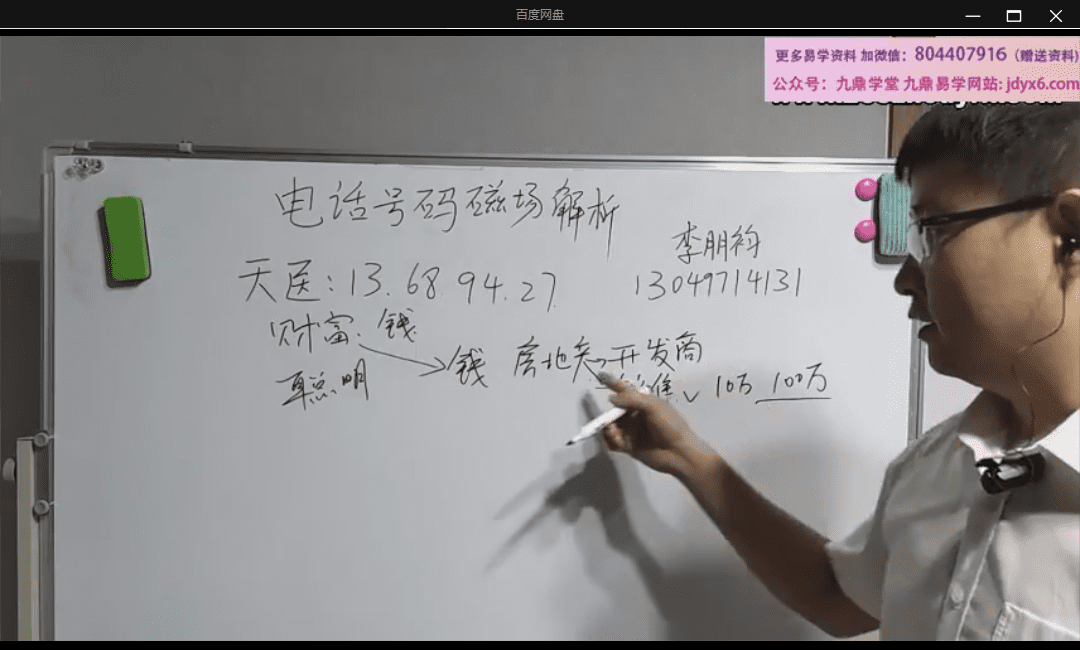 百度网盘
更多易学资料 加微信：804407916（赠送资料)
公众号：九鼎学堂 九鼎易学网站: jdyx6.com
电话号码磁场解析
李朋衿
天医：13.68.94.27
13049714131
财富：钱
钱 房地 开发商
聪明
10万 100万